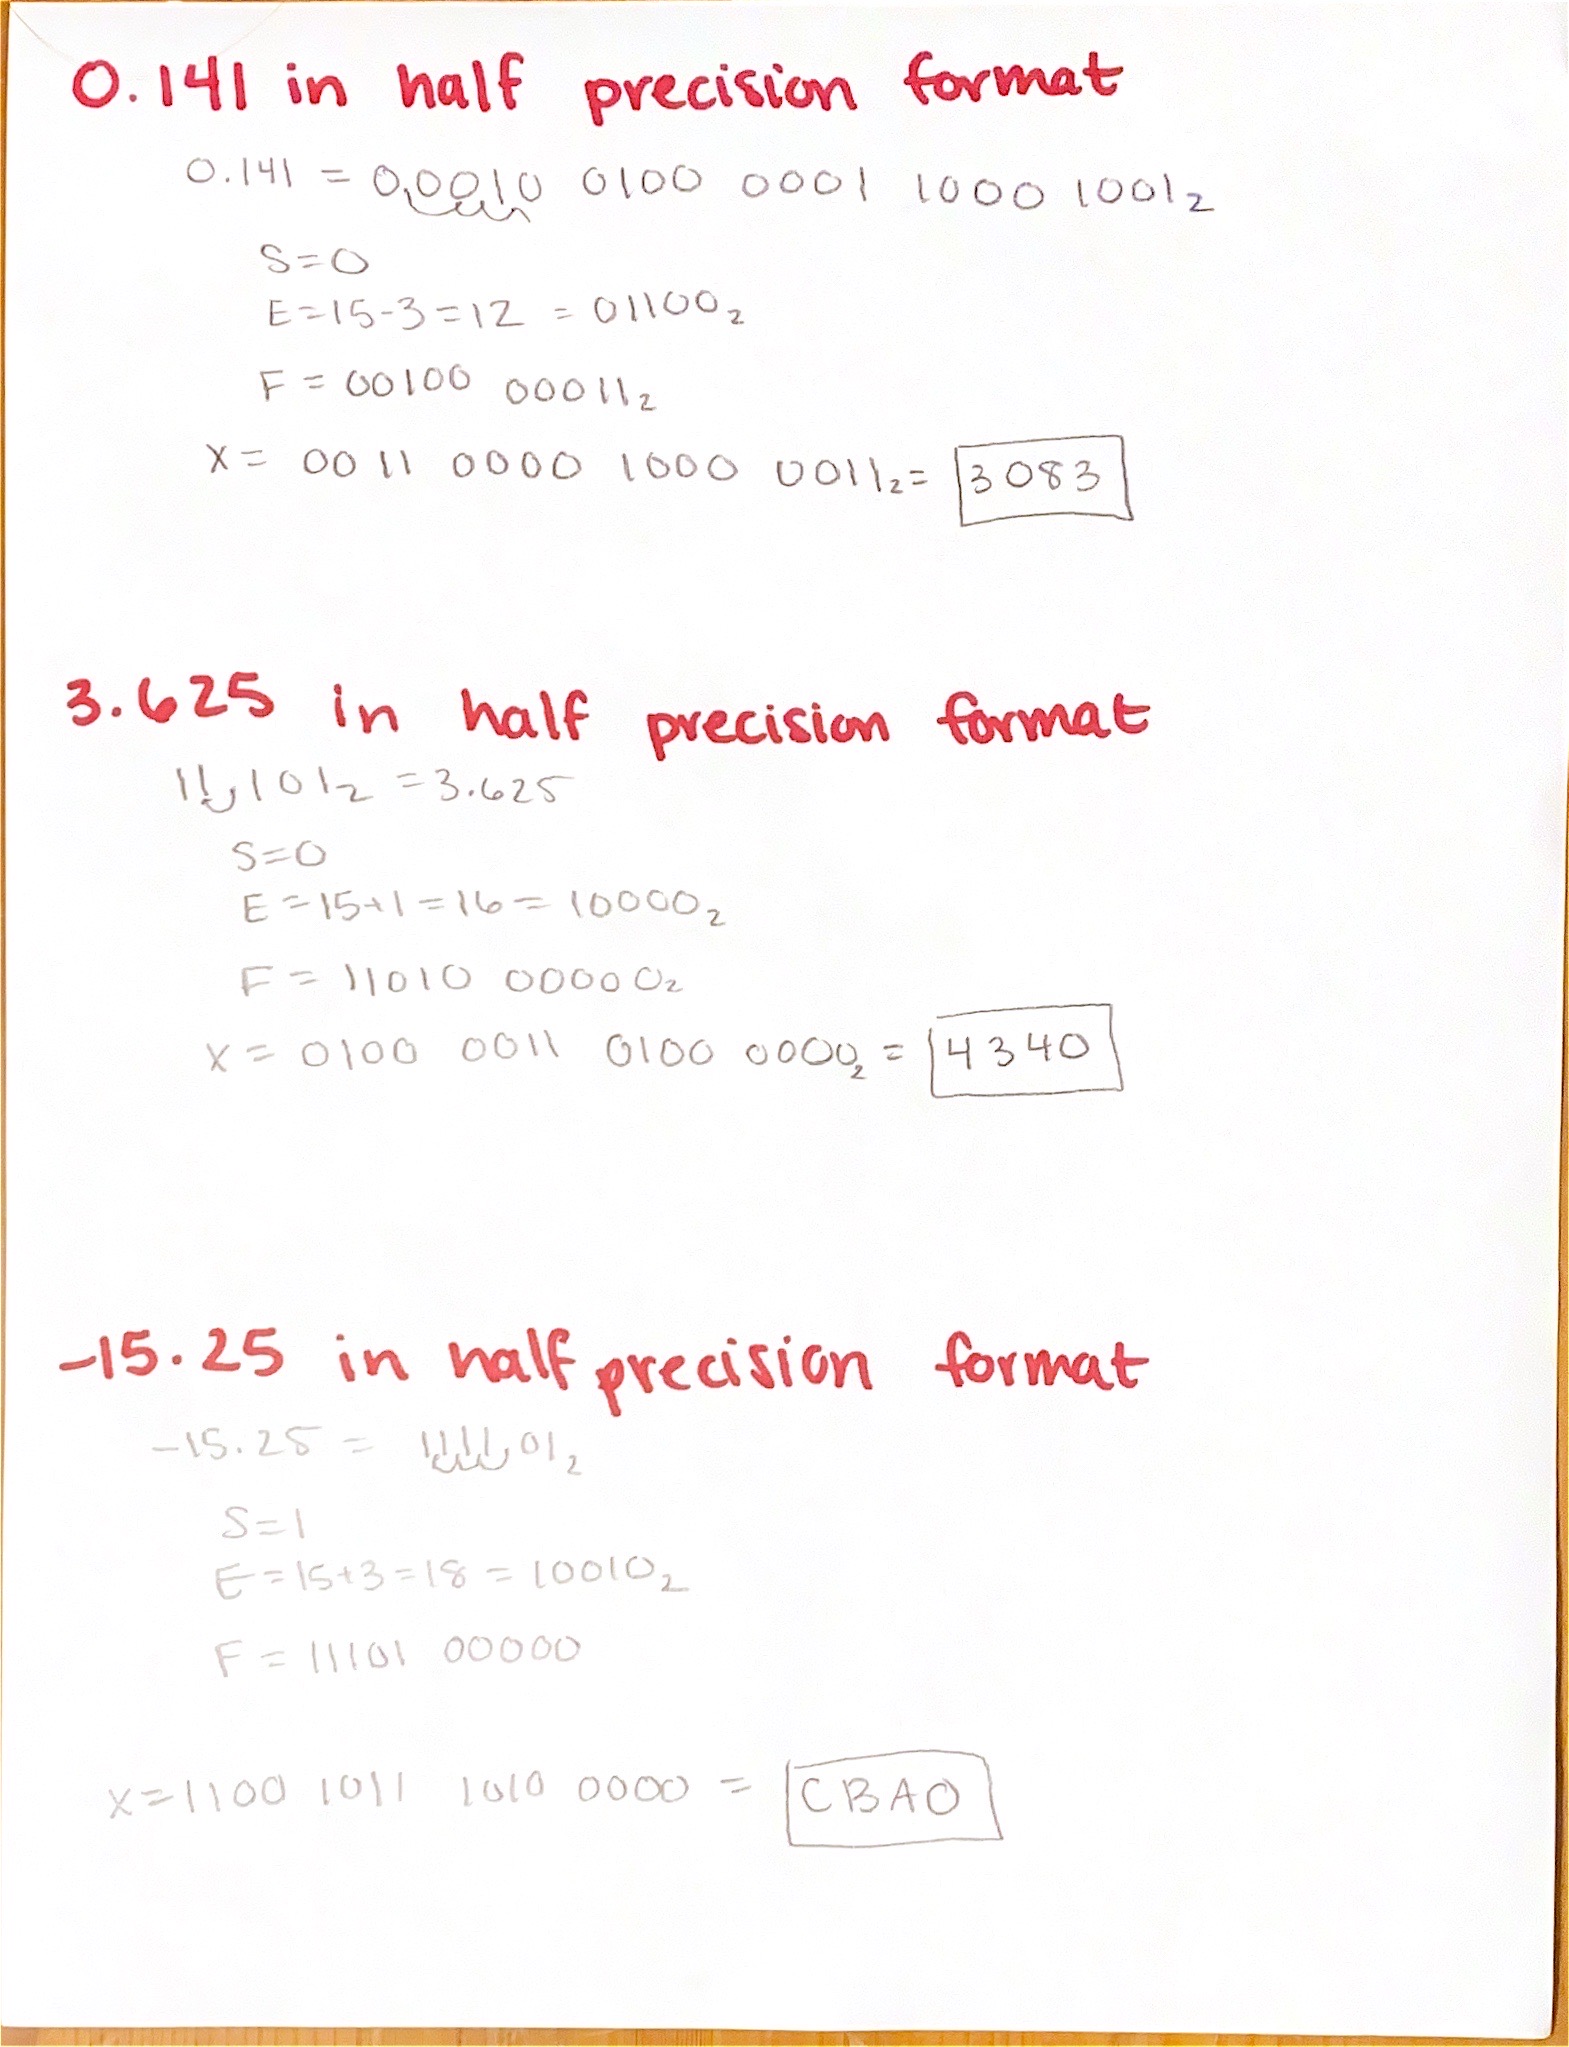 0.141 in half precision format
0.141 = 0.0010 0100 0001 1000 1001₂
S=0
E=15-3=12 = 01100₂
F = 00100 00011₂
X= 0011 0000 1000 0011₂= 3083
3.625 in half precision format
11.101₂ =3.625
S=0
E=15+1=16= 10000₂
F= 11010 00000₂
X= 0100 0011 0100 0000₂ = 4340
-15.25 in half precision format
-15.25 = 1111.01₂
S=1
E=15+3=18=10010₂
F=11101 00000
X=1100 1011 1010 0000 = CBA0